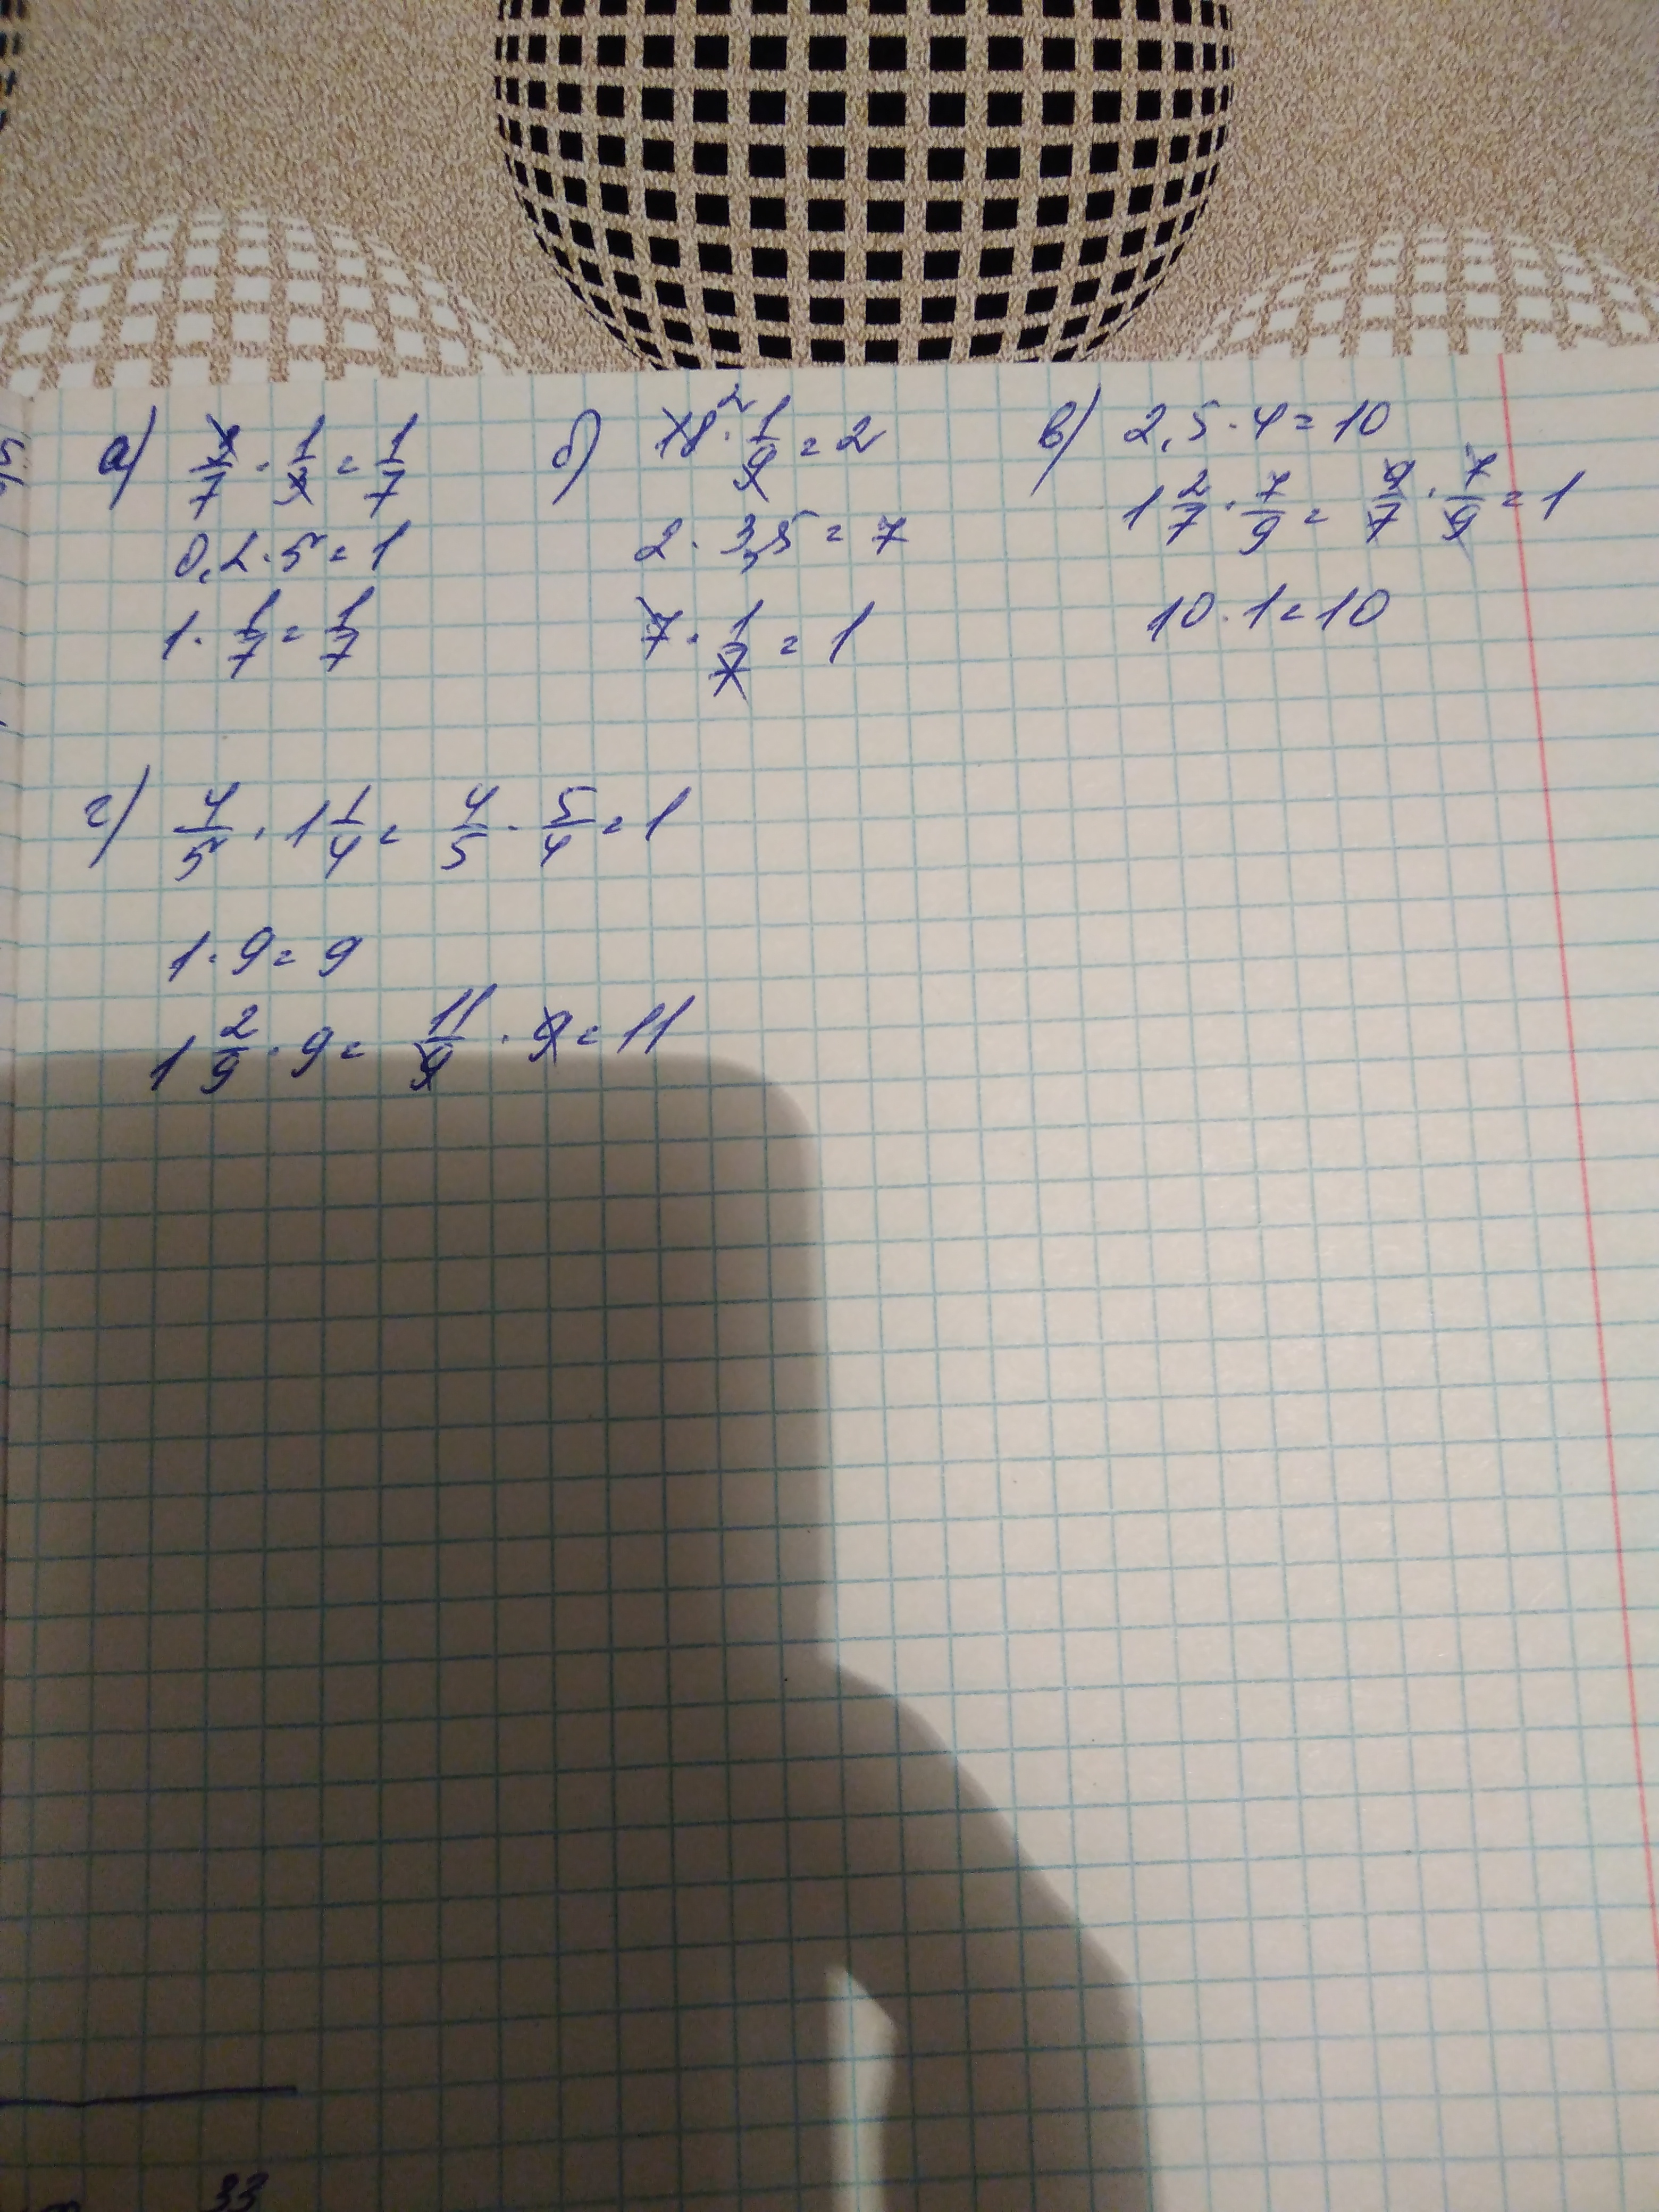 а) 3/7 · 1/3 = 1/7
0,2 · 5 = 1
1 · 1/7 = 1/7
б) 18 2 · 1/9 = 2
2 · 3,5 = 7
7 · 1/7 = 1
в) 2,5 · 4 = 10
1 2/7 · 7/9 = 9/7 · 7/9 = 1
10 · 1 = 10
г) 4/5 · 1 1/4 = 4/5 · 5/4 = 1
1 · 9 = 9
1 2/9 · 9 = 11/9 · 9 = 11
33